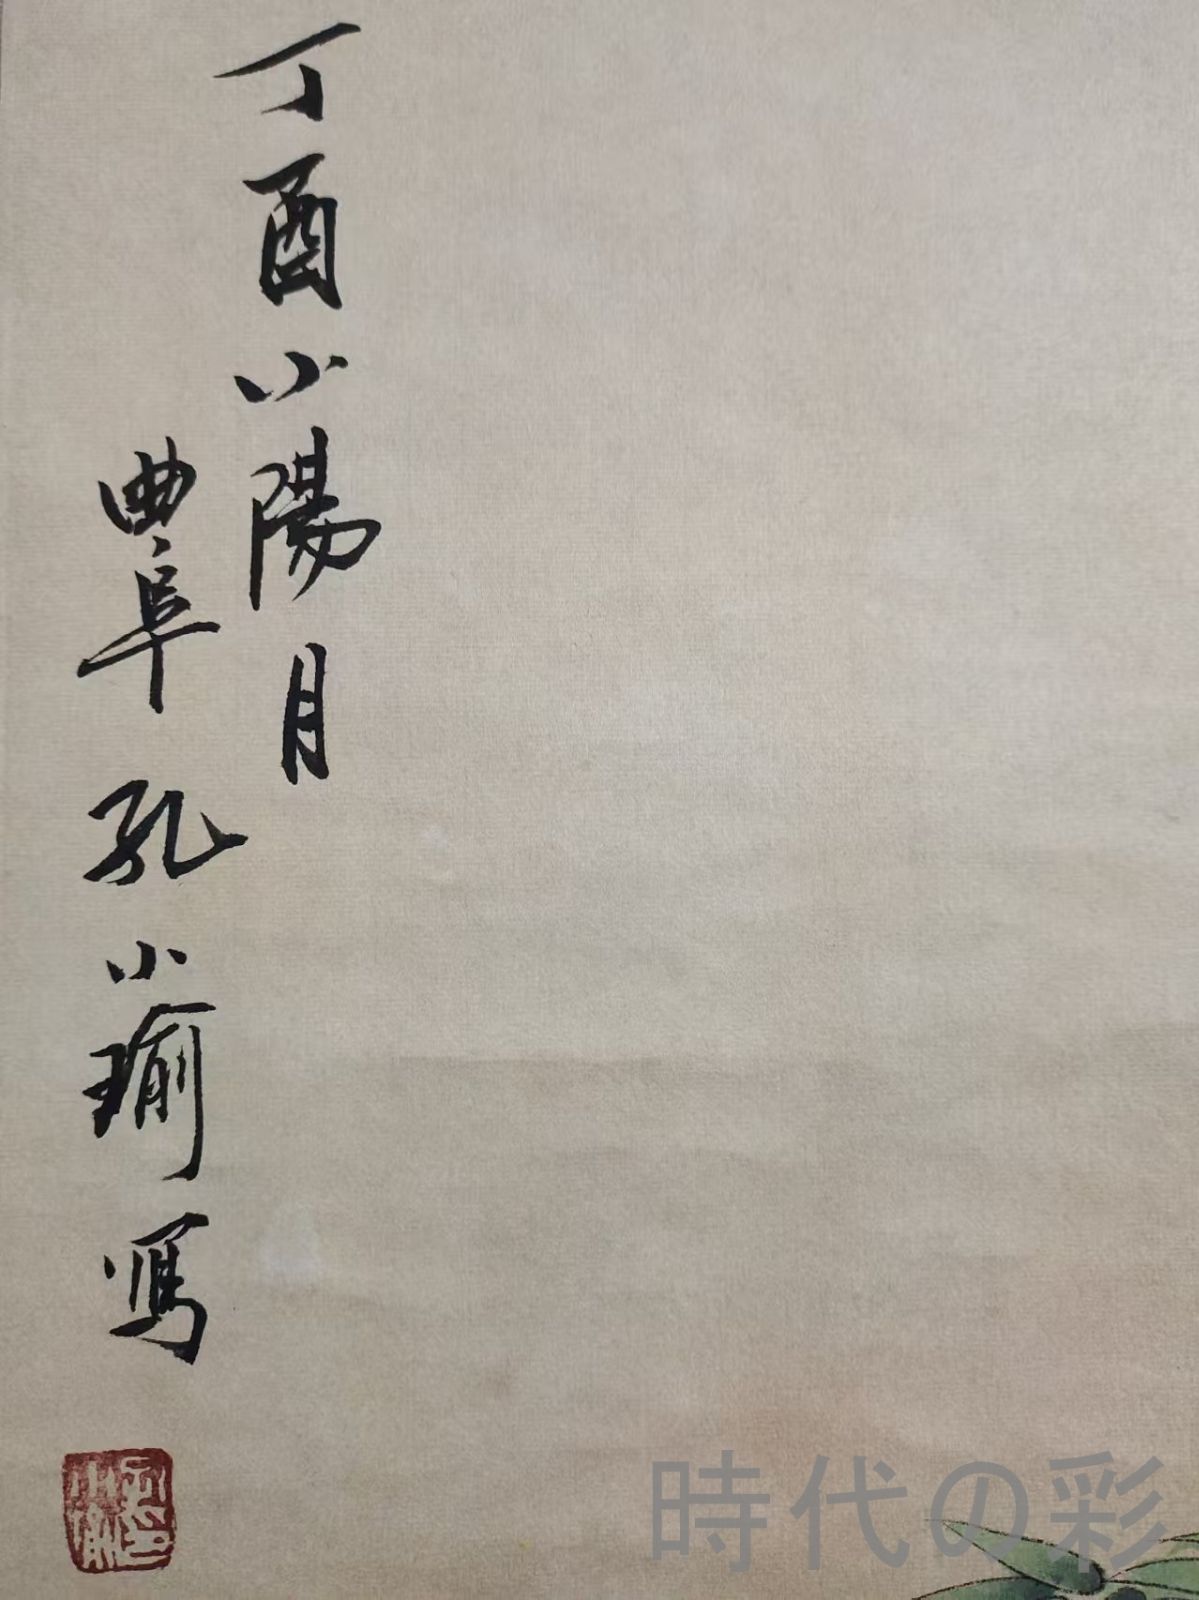 丁酉小陽月
曲阜孔小瑜寫
時代の彩